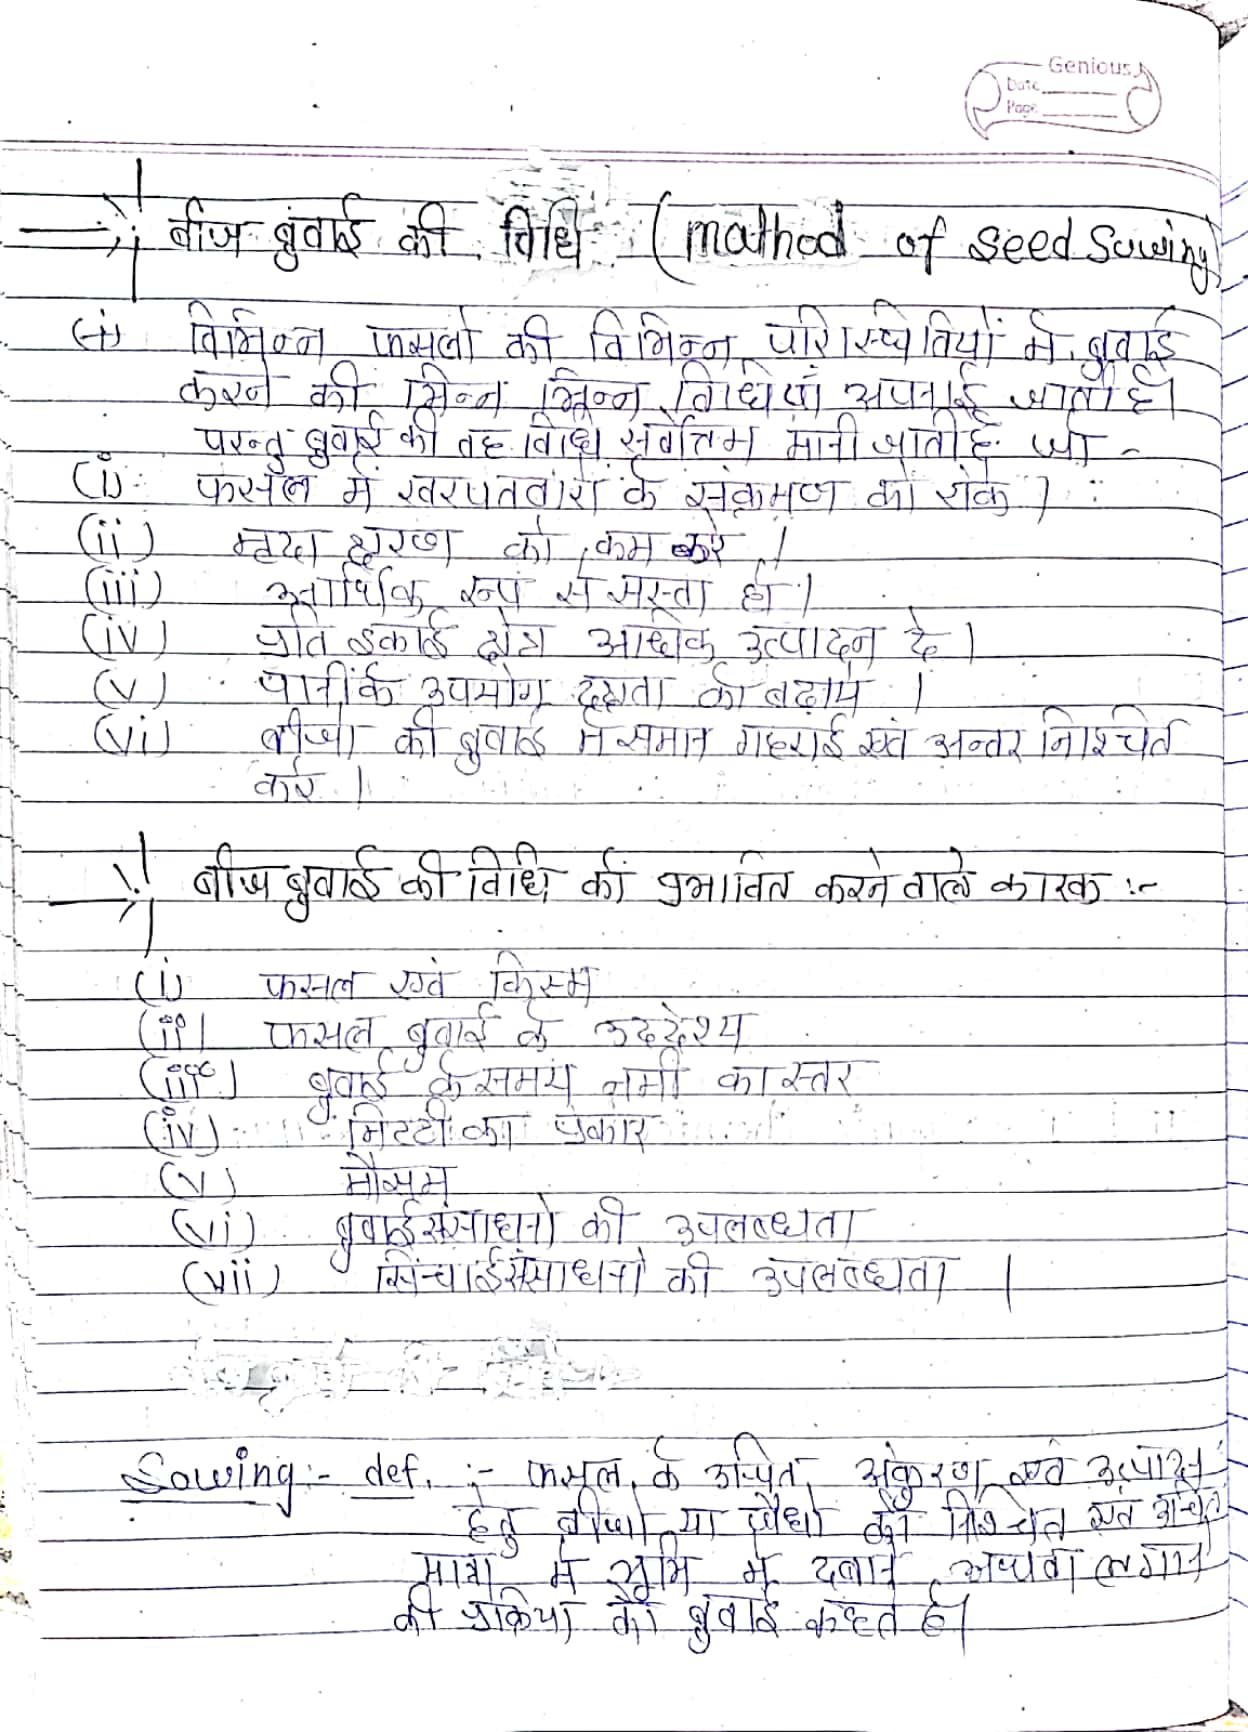 Genious
Date
Page
बीज बुवाई की विधि (mathod of seed Sowing)
(i) विभिन्न फसलो की विभिन्न परिस्थितियों में बुवाई
करने की भिन्न भिन्न विधियां अपनाई जाती है।
परन्तु बुवाई की वह विधि सर्वोत्तम मानी जाती है जो -
(i) फसल में खरपतवारो के संक्रमण को रोके।
(ii) मृदा क्षरण को कम करे।
(iii) आर्थिक रूप से सस्ता हो।
(iv) प्रति इकाई क्षेत्र अधिक उत्पादन दे।
(v) पानी के उपभोग दक्षता को बढ़ाये।
(vi) बीजो की बुवाई में समान गहराई एवं अन्तर निश्चित
करे।
बीज बुवाई की विधि को प्रभावित करने वाले कारक :-
(i) फसल एवं किस्म
(ii) फसल बुवाई के उददेश्य
(iii) बुवाई के समय नमी का स्तर
(iv) मिटटी का प्रकार
(v) मौसम
(vi) बुवाई संसाधनो की उपलब्धता
(vii) सिंचाई संसाधनो की उपलब्धता।
Sowing:- def. :- फसल के उचित अंकुरण एवं उत्पादन
हेतु बीजो या पौधो को निश्चित एवं उचित
मात्रा में भूमि में दबाने अथवा लगाने
की प्रक्रिया को बुवाई कहते है।